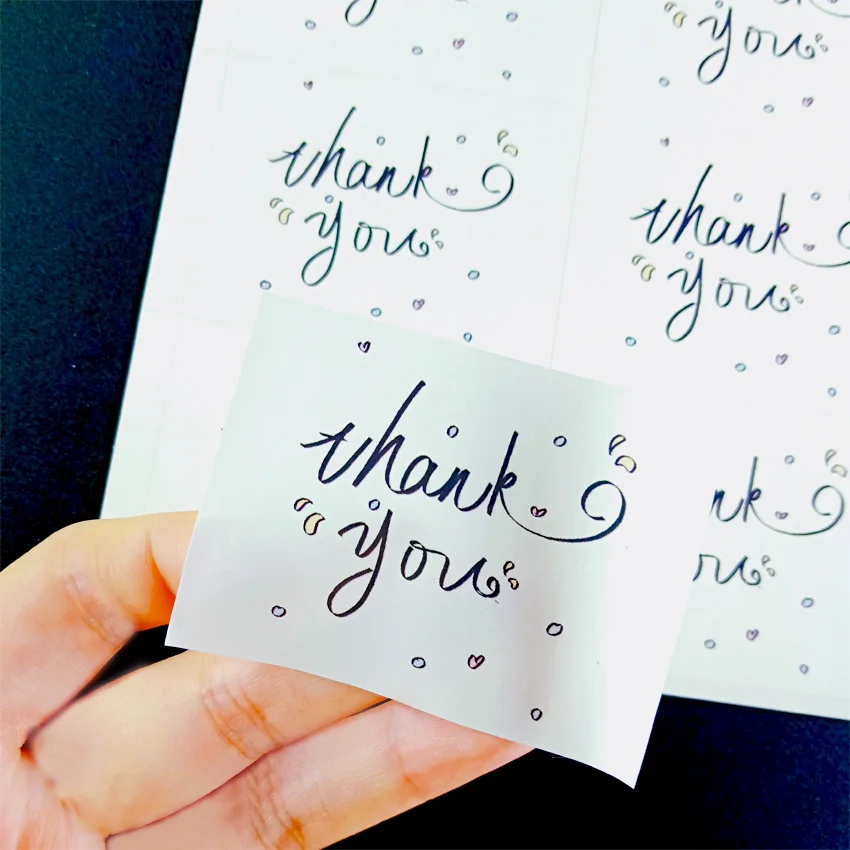 you
thank
you
thank
you
thank
you
nk
you
you